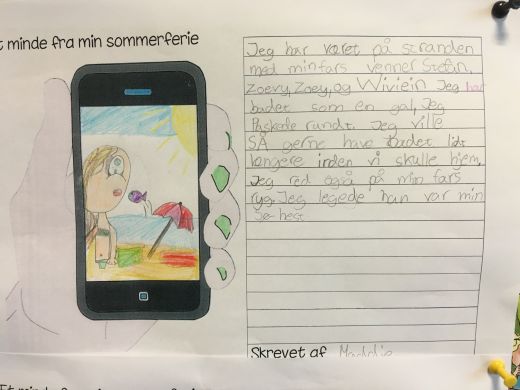 t minde fra min sommerferie
Jeg har været på stranden
med min fars venner Stefan,
Zoevy, Zoey, og Wiviein Jeg har
badet som en gal, Jeg
Paskede rundt. Jeg ville
SÅ gerne have badet lidt
længere inden vi skulle hjem.
Jeg red også på min fars
ryg. Jeg legede han var min
Sø-hest
Skrevet af